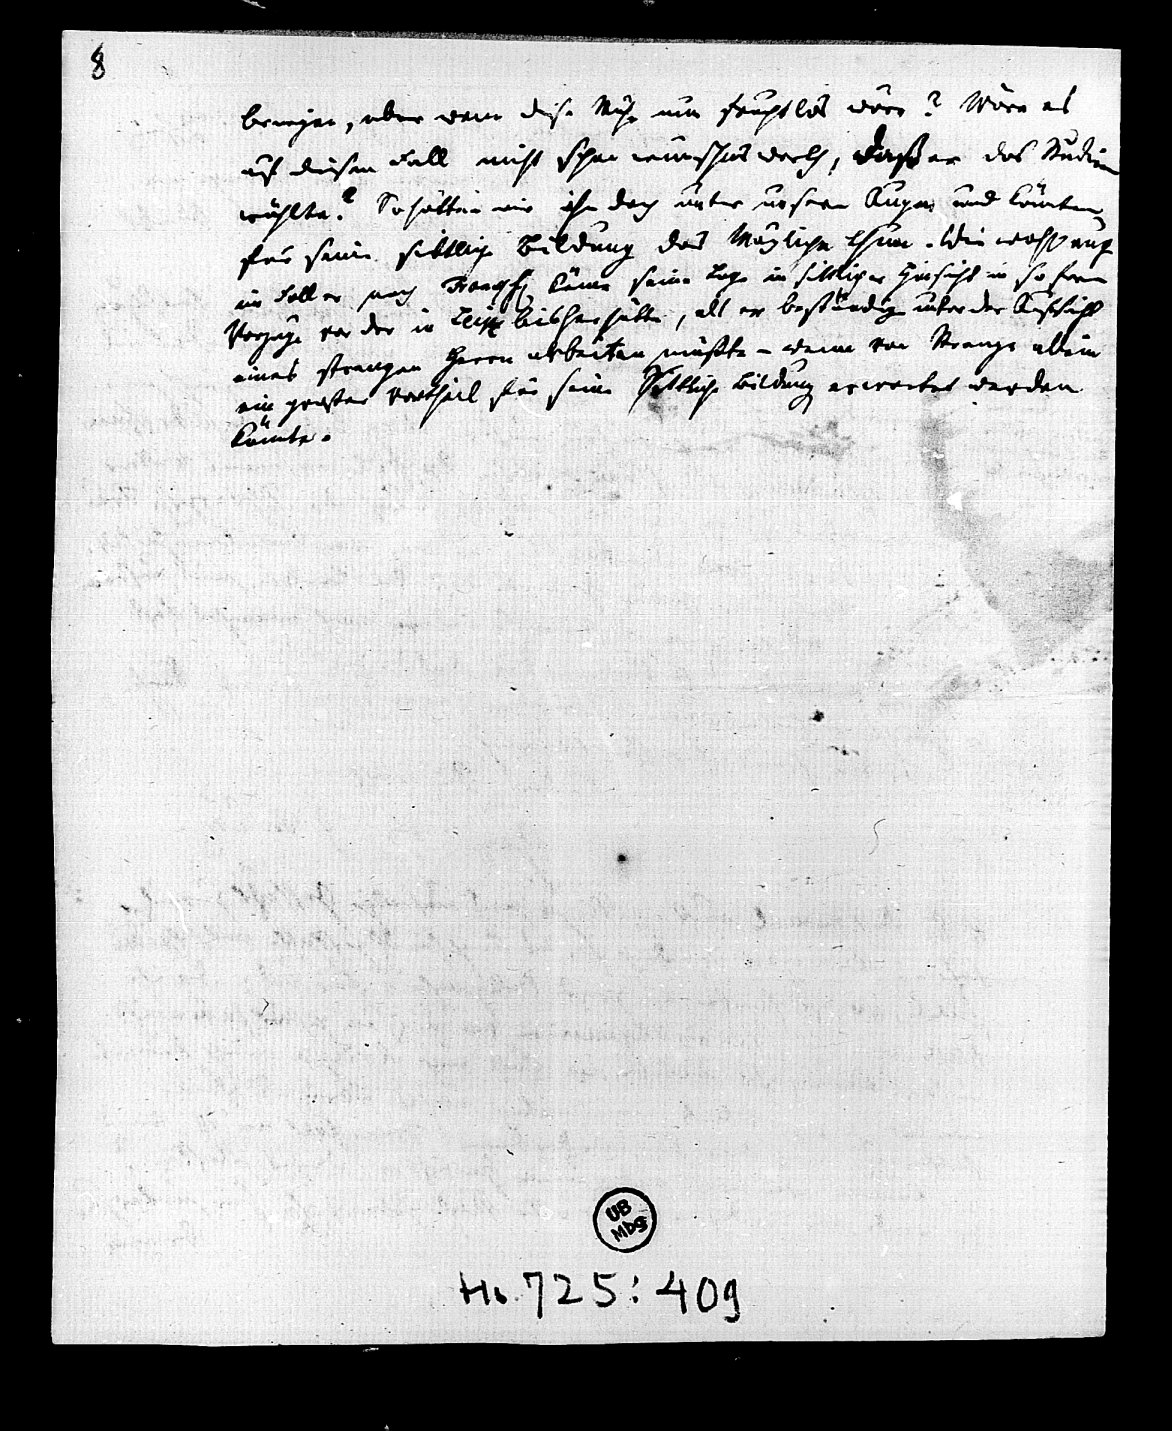 8
bewegen, aber wenn diese Mühe nun fruchtlos wäre? Wäre es
auf diesen Fall nicht schon wünschenswerth, daß er das Studiren
wählte? So hätten wir ihn doch unter unsern Augen und könten
für seine sittliche Bildung das Mögliche thun. Wie wohl auch
im Fall er nach Frankf. käme seine Lage in sittlicher Hinsicht in so fern
Vorzüge vor der in Leipz. bisher hätte, als er beständig unter der Aufsicht
eines strengen Herrn arbeiten müßte - wenn von Strenge allein
ein großer Vortheil für seine Sittliche Bildung erwartet werden
könte.
UB
Mbg
Hs. 725:409